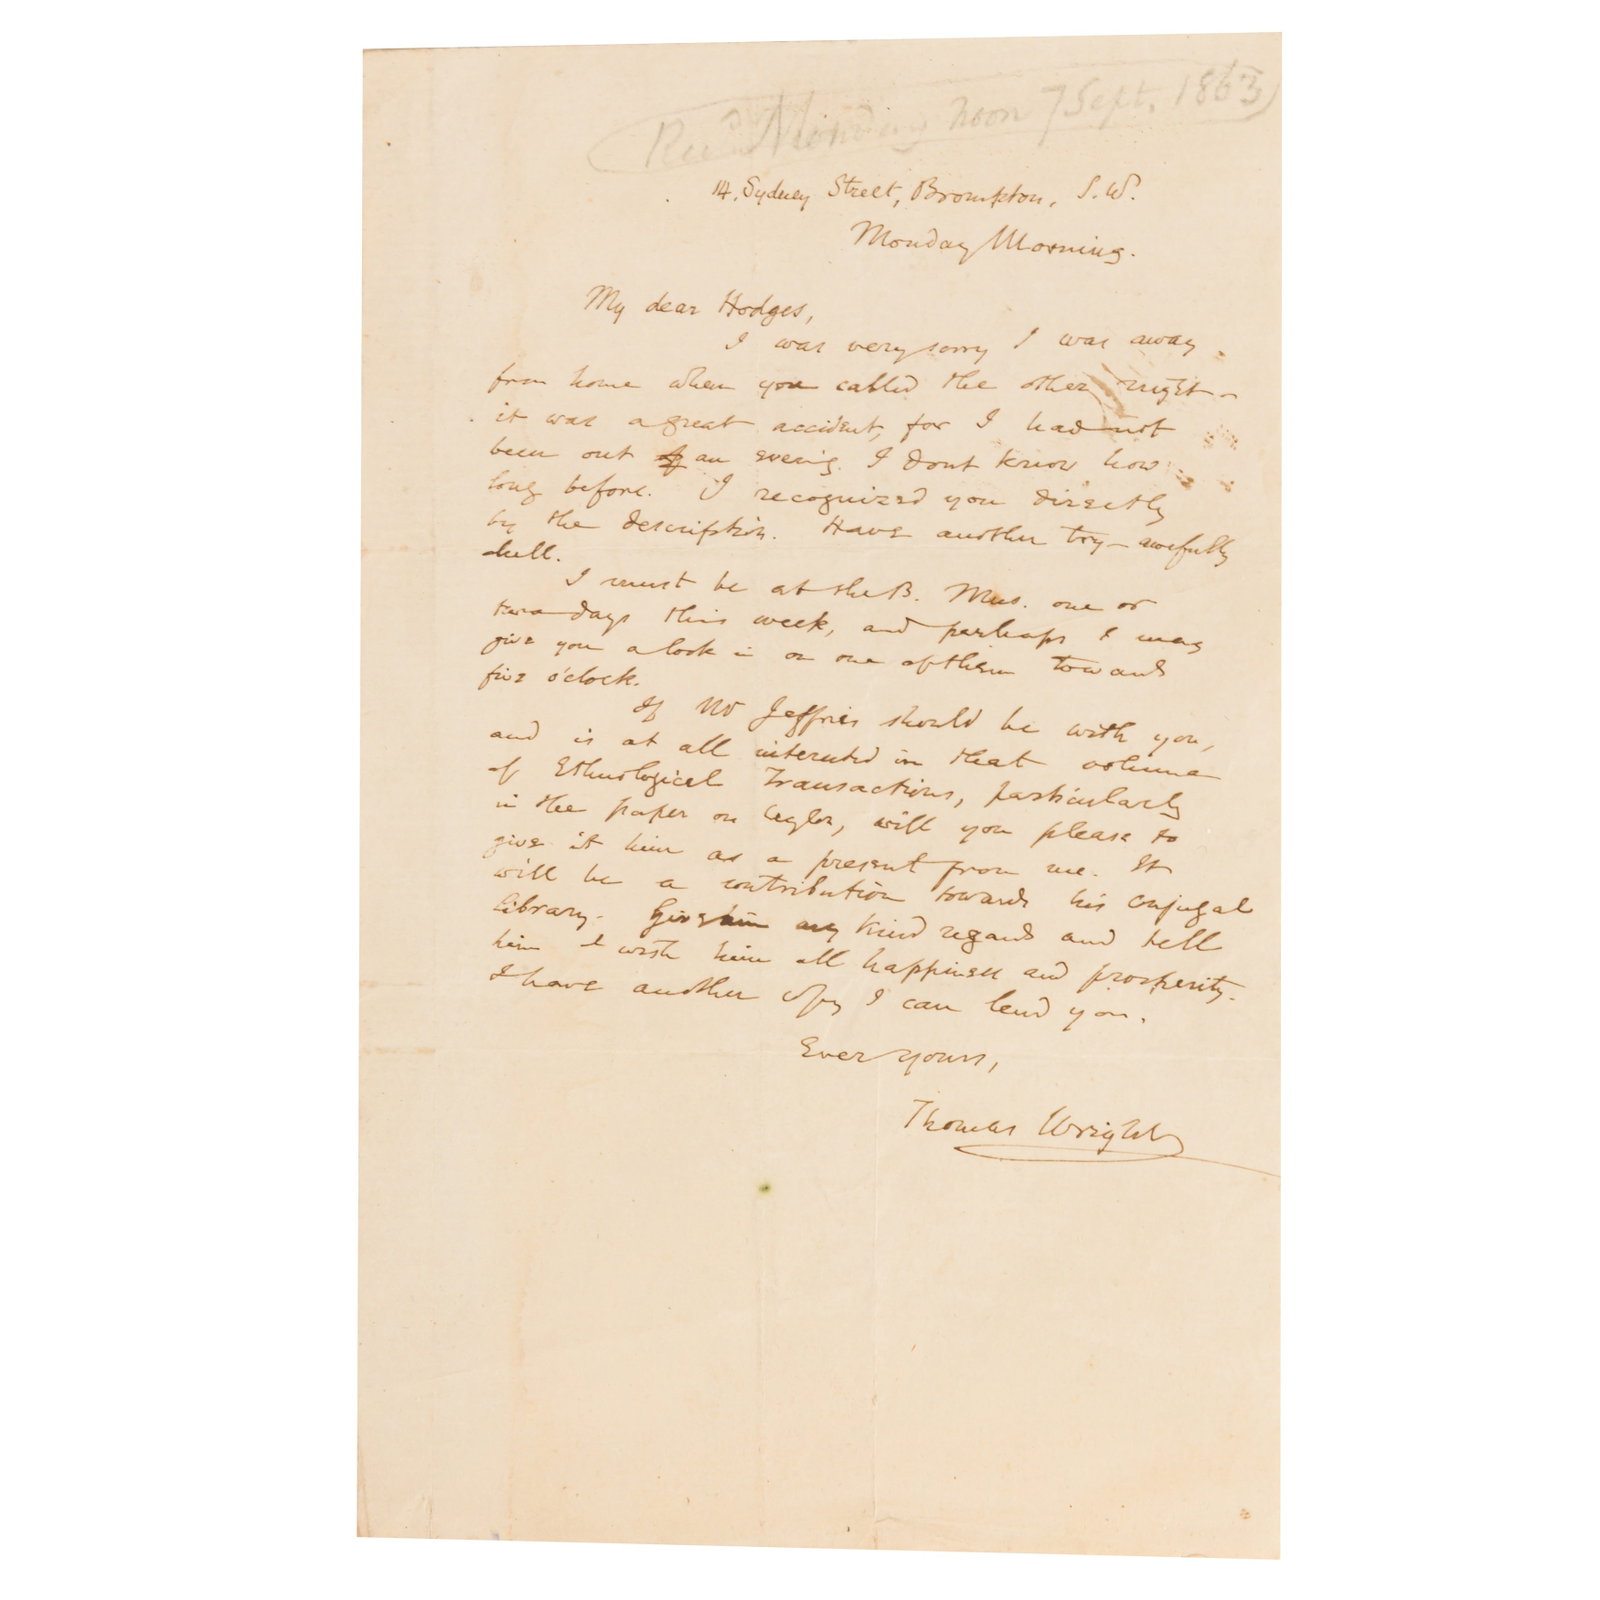 Recd Monday noon 7 Sept. 1863
14. Sydney Street, Brompton, S.W.
Monday Morning.
My dear Hodges,
I was very sorry I was away
from home when you called the other night -
it was a great accident, for I had not
been out an evening I dont know how
long before. I recognized you directly
by the description. Have another try - awefully
dull.
I must be at the B. Mus. one or
two days this week, and perhaps I may
give you a look in on one of them towards
five o'clock.
If Mr Jeffries should be with you,
and is at all interested in that volume
of Ethnological Transactions, particularly
in the paper on Ceylon, will you please to
give it him as a present from me. It
will be a contribution towards his conjugal
library. Give him my kind regards and tell
him I wish him all happiness and prosperity.
I have another copy I can lend you.
Ever yours,
Thomas Wright